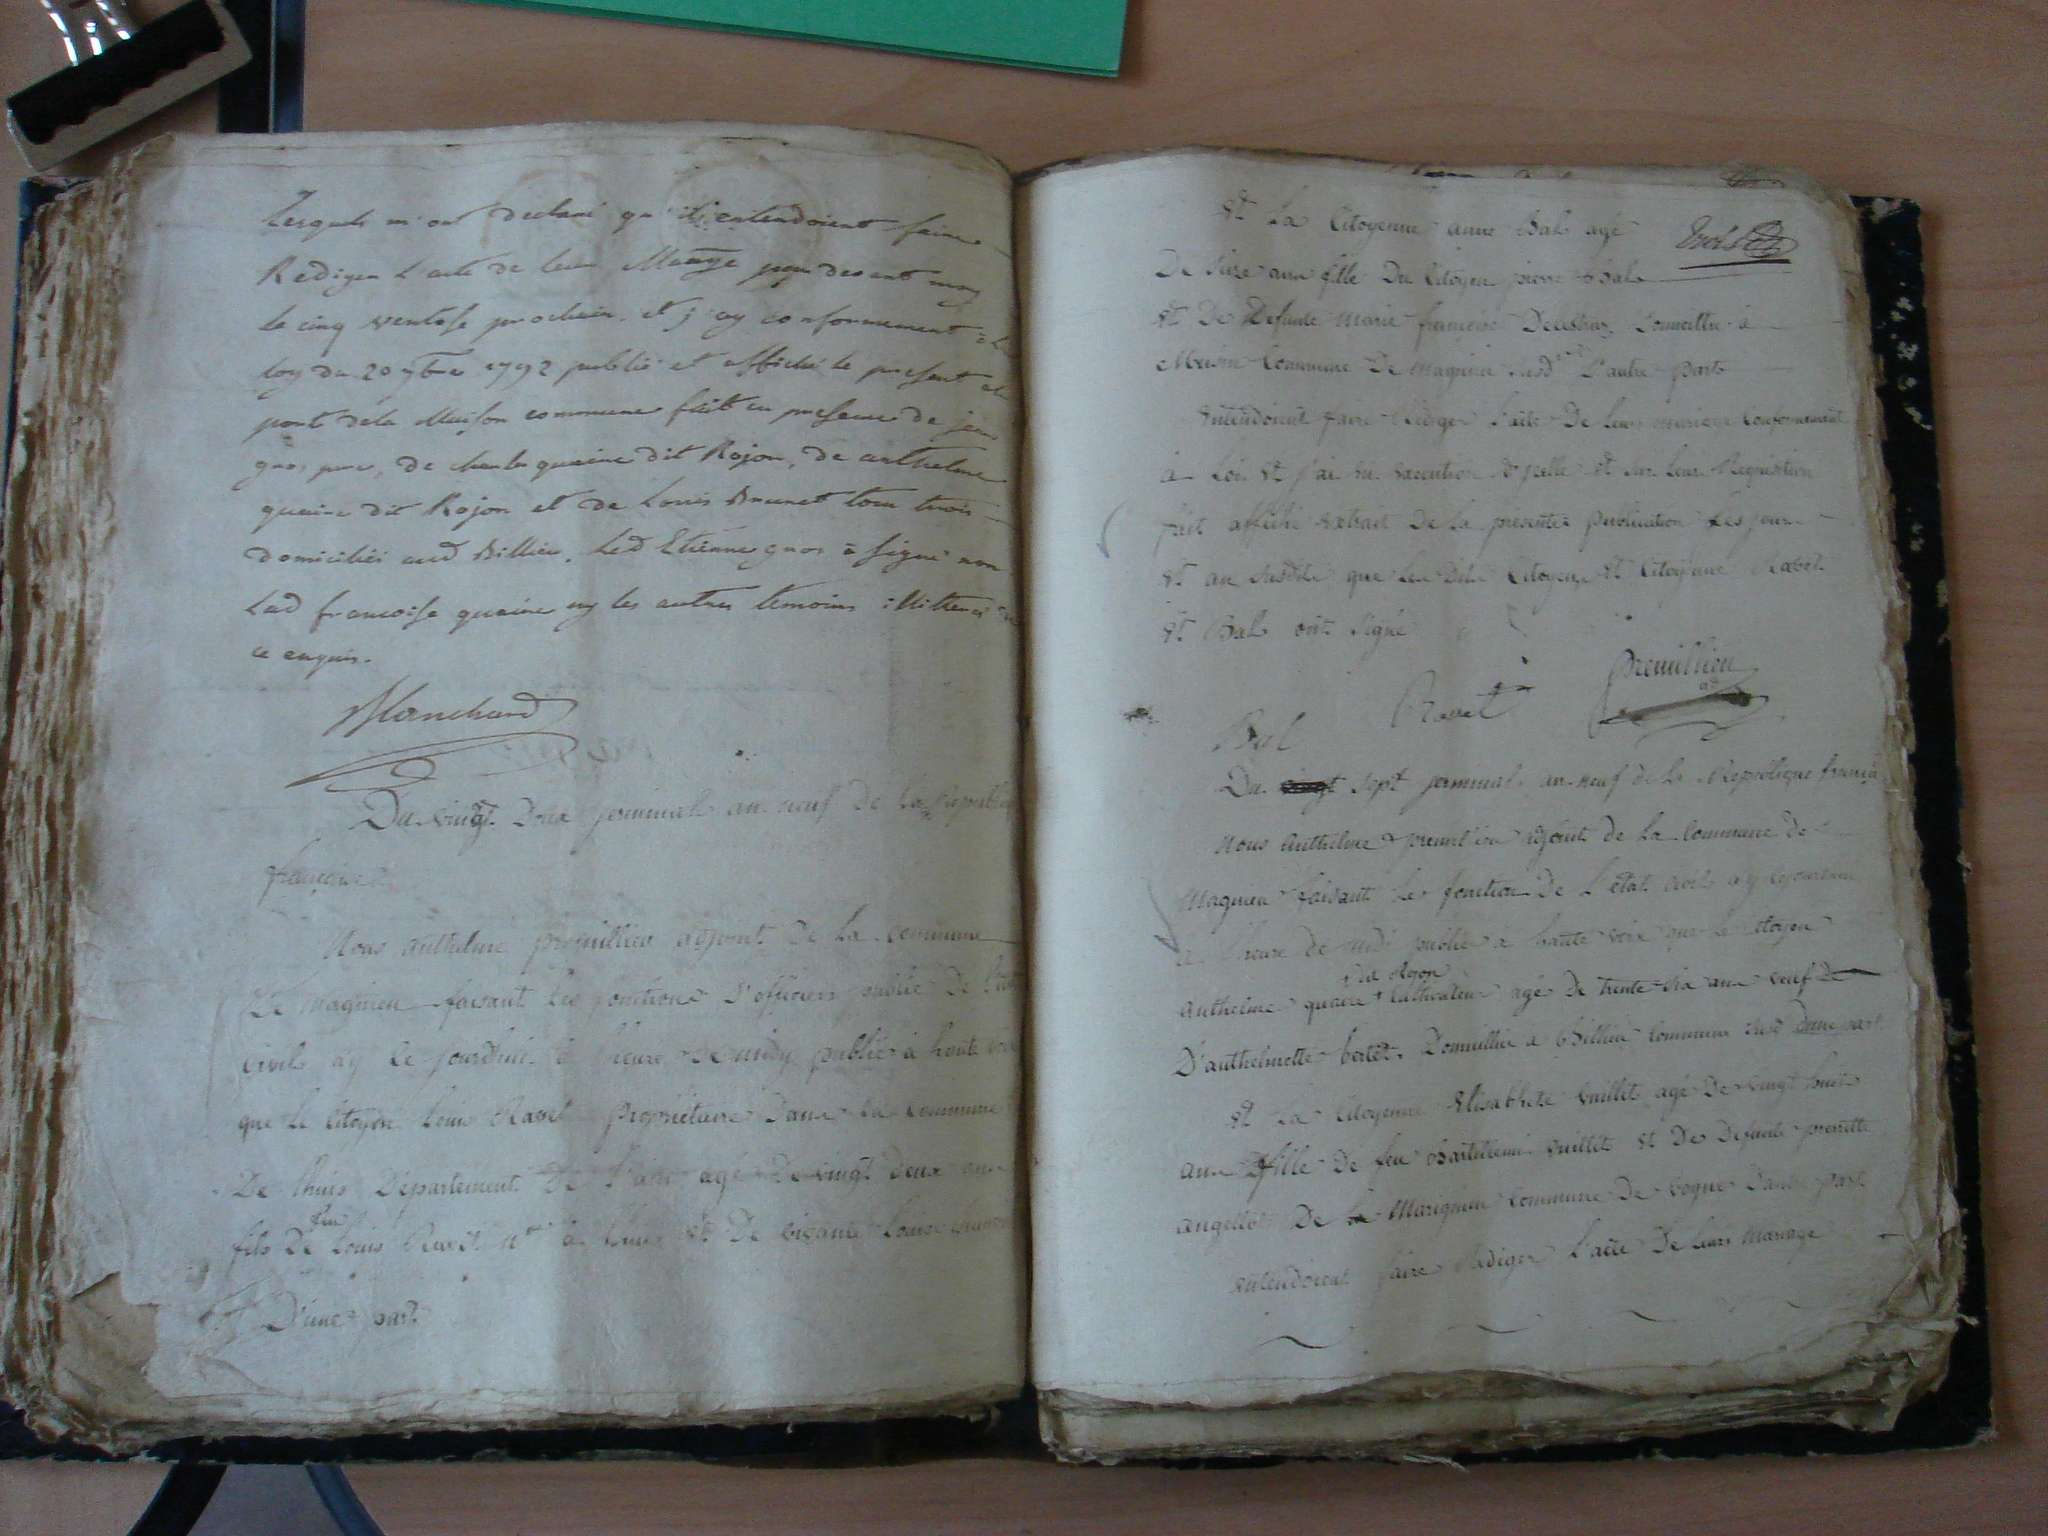 Lesquels m'ont declaré qu'ils entendoient faire
Rediger L'acte de leur Mariage par devant moy
le cinq ventose prochain. et j'ay conformement à la
loy du 20 7bre 1792 publié et affiché le present au
pont de la Maison commune fait en presence de
gros pere, de quaire dit Rojon, de anthelme
quaire dit Rojon et de Louis Brunet tous trois
domiciliés aud Billieu. Led Etienne gros a signé non
Lad francoise quaine ny les autres temoins illitteres de
ce enquis.
Blanchard
Du vingt Deux jerminal an neuf de la Republique
françoise
Nous anthelme premillieu adjoint De La commune
De Magnieu faisant Les fonctions D'officiers public De L'etat
civils ay Le jourdhui à l'heure De midy publié à haute voix
que Le Citoyen Louis Ravet Propriétaire Dans La commune
De lhuis Département De L'ain agé De vingt Deux ans
fils De feu Louis Ravet à lhuis et De vivante Louise
D'une part
et La Citoyenne anne Bal agé
trois
De Seize ans fille Du Citoyen pierre Bal
et De Defunte Marie françoise Domicillié à
Commune De Magnieu susd L'autre part
entendoient faire rediger L'acte De Leurs mariage Conformement
à Loi et j'ai en execution D'icelle et sur Leur Requisition
fait affiché extrait De La présente publication Les jour
et an susdits que Les Dits Citoyens et Citoyenne Ravet
et Bal ont signé
Bal Ravet premillieu
ad
Du vingt sept jerminal an neuf de La Republique françoise
Nous Anthelme premillieu adjoint de La Commune de
Magnieu faisant Les fonction De L'état civils ay cejourdhui
à l'heure de midi publié à haute voix que le Citoyen
dit Rojon
Anthelme quaire Cultivateur agé De trente six ans veuf de
D'anthelmette bertet Domicillié à Billieu Commune susd D'une part
et La Citoyenne Elisabhete vuillet agé De vingt huit
ans fille De feu Bartélémi vuillet et De Defunte pierrette
angellot De Marignieu Commune De vogne D'autre part
entendoient faire Rediger L'acte De Leurs Mariage